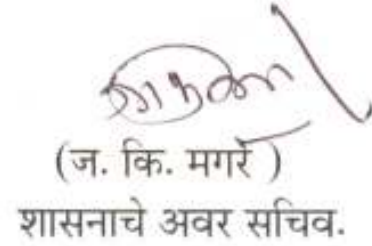 (ज. कि. मगरे )
शासनाचे अवर सचिव.